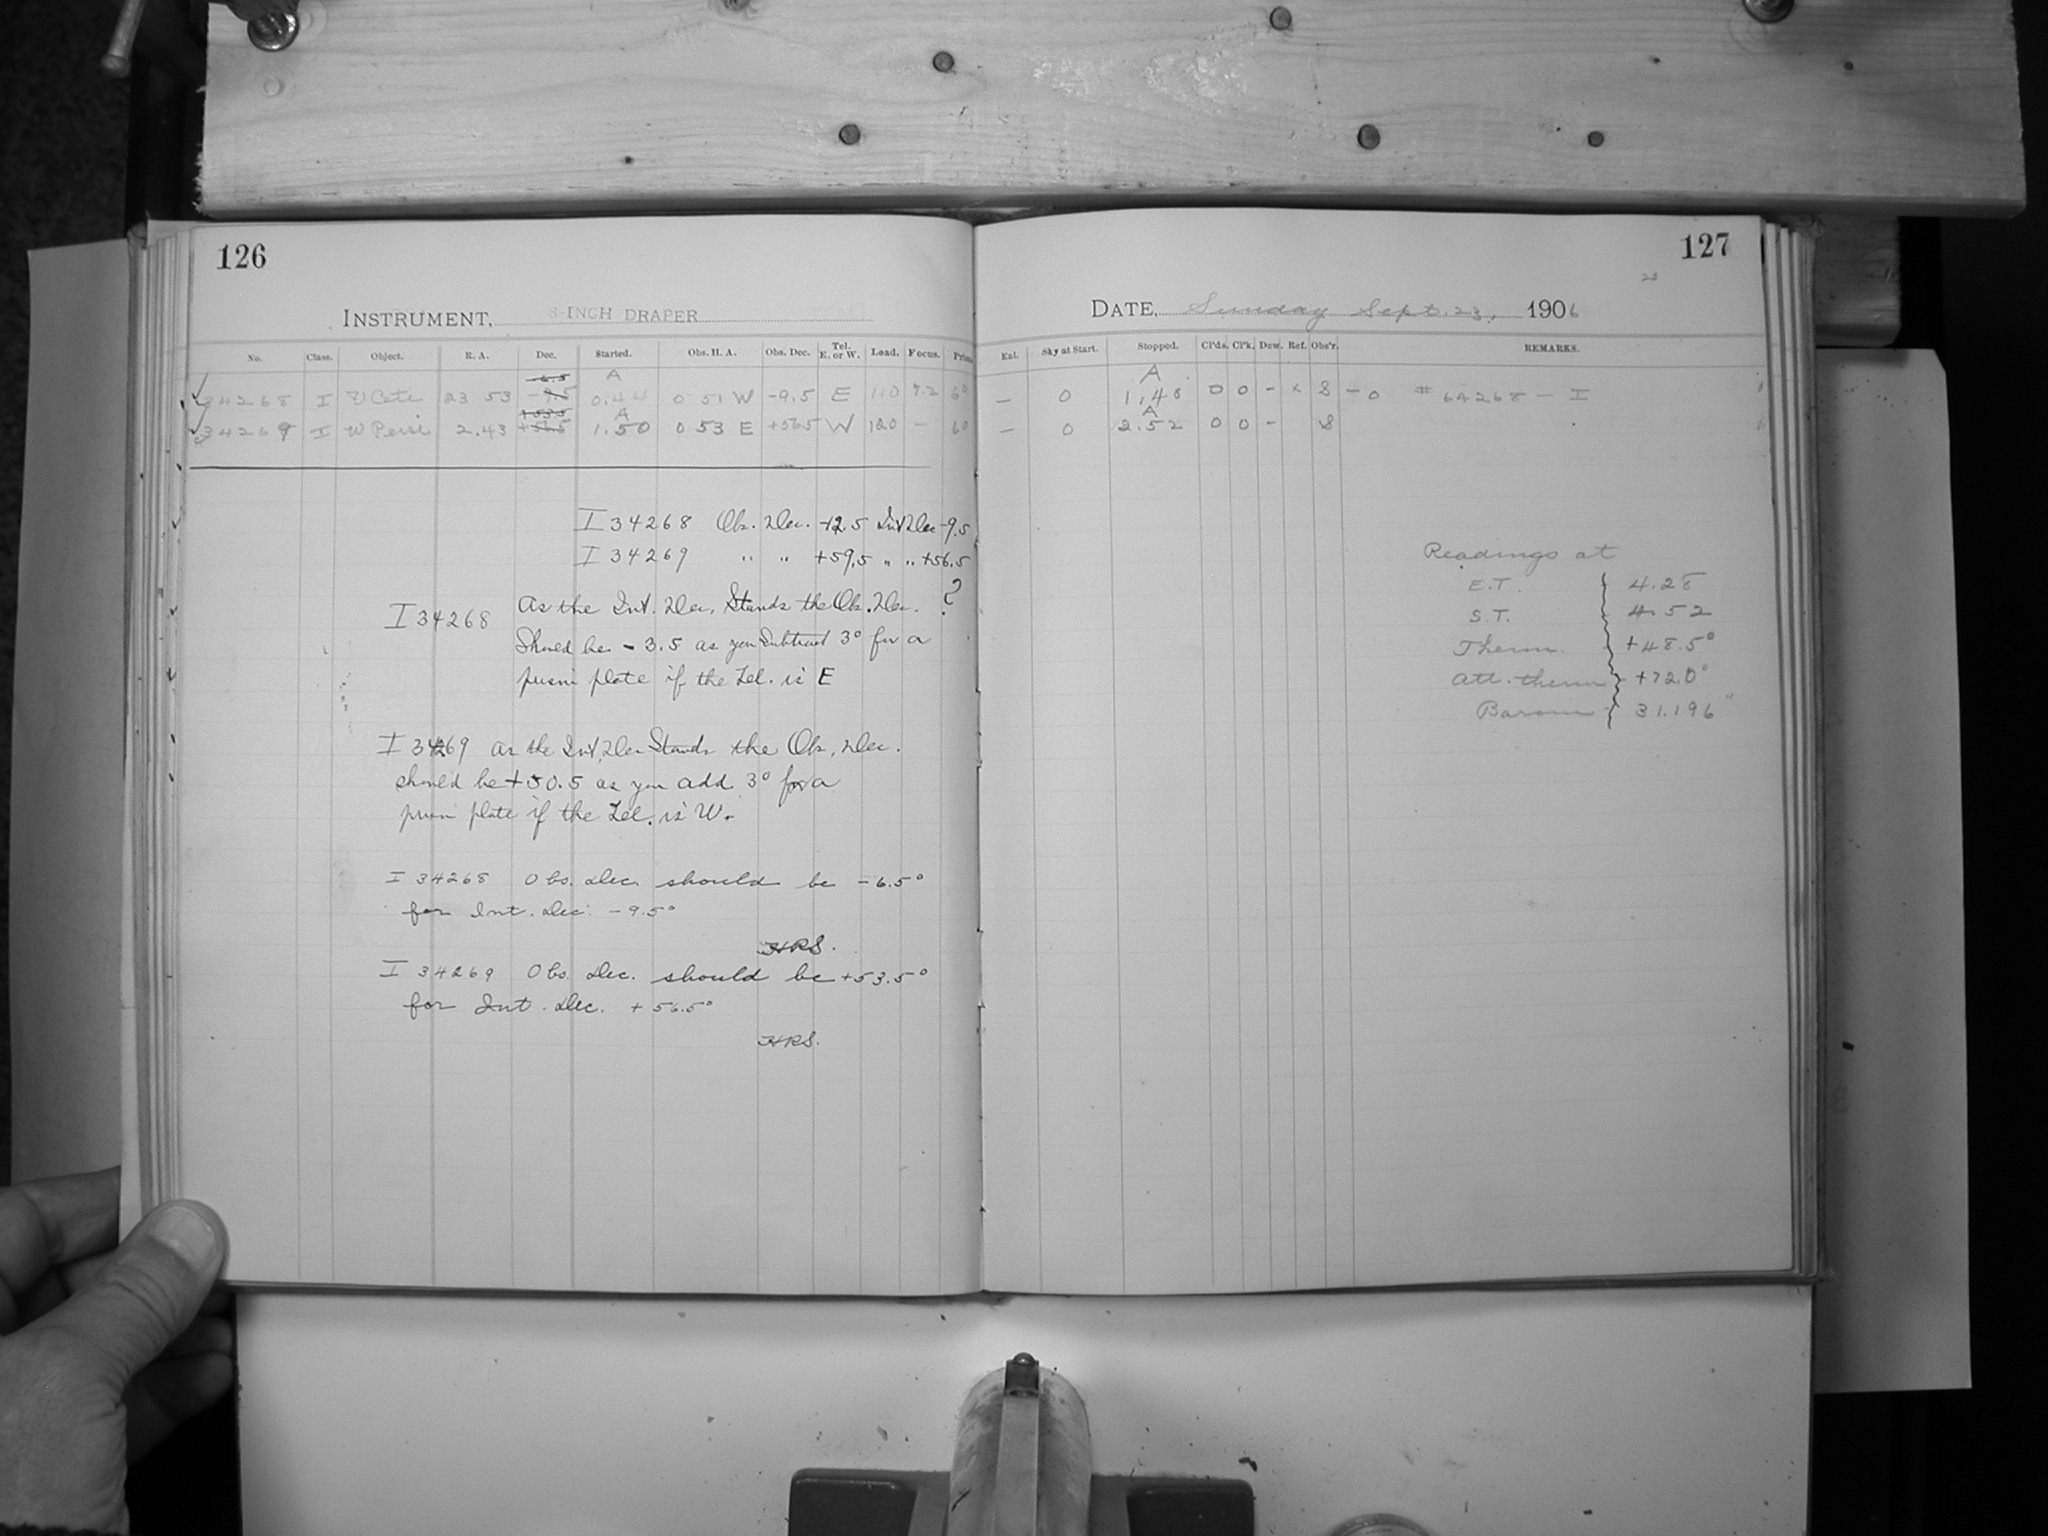 126
INSTRUMENT, 8-INCH DRAPER
No. Class. Object. R. A. Dec. Started. Obs. H. A. Obs. Dec. Tel. E. or W. Load. Focus. Prism
-6.5 A
34268 I U Ceti 23 53 -9.5 0.44 0 51 W -9.5 E 110 7.2 60
+53.5 A
34269 I W Persi 2.43 +56.5 1.50 0 53 E +56.5 W 120 - 60
I 34268 Ob. Dec. -12.5 Int Dec -9.5
I 34269 " " +59.5 " " +56.5
I 34268 As the Int. Dec. Stands the Ob. Dec. ?
Should be - 3.5 as you Subtract 3° for a
prism plate if the Tel. is E
I 34269 as the Int. Dec Stands the Ob. Dec.
should be +50.5 as you add 3° for a
prism plate if the Tel. is W.
I 34268 Obs. Dec. should be -6.5°
for Int. Dec. -9.5°
HRS.
I 34269 Obs. Dec. should be +53.5°
for Int. Dec. + 56.5°
HRS.
127
20
DATE, Sunday Sept. 23, 1906
Enl. Sky at Start. Stopped. Cl'ds. Cl'k. Dew. Ref. Obs'r. REMARKS.
A
— 0 1.48 0 0 - x S - 0 # 64268 - I
A
— 0 2.52 0 0 - S
Readings at
E.T. 4.28
S.T. 4.52
Therm. +48.5°
Att. therm +72.0°
Barom 31.196"